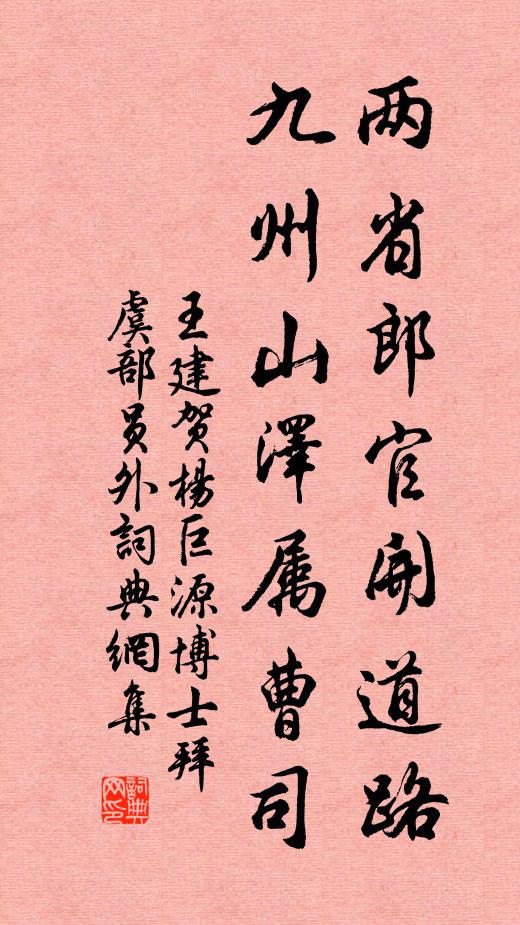 两省郎官开道路
九州山澤属曹司
王建贺杨巨源博士拜
虞部员外詞典網集
詞典
网印